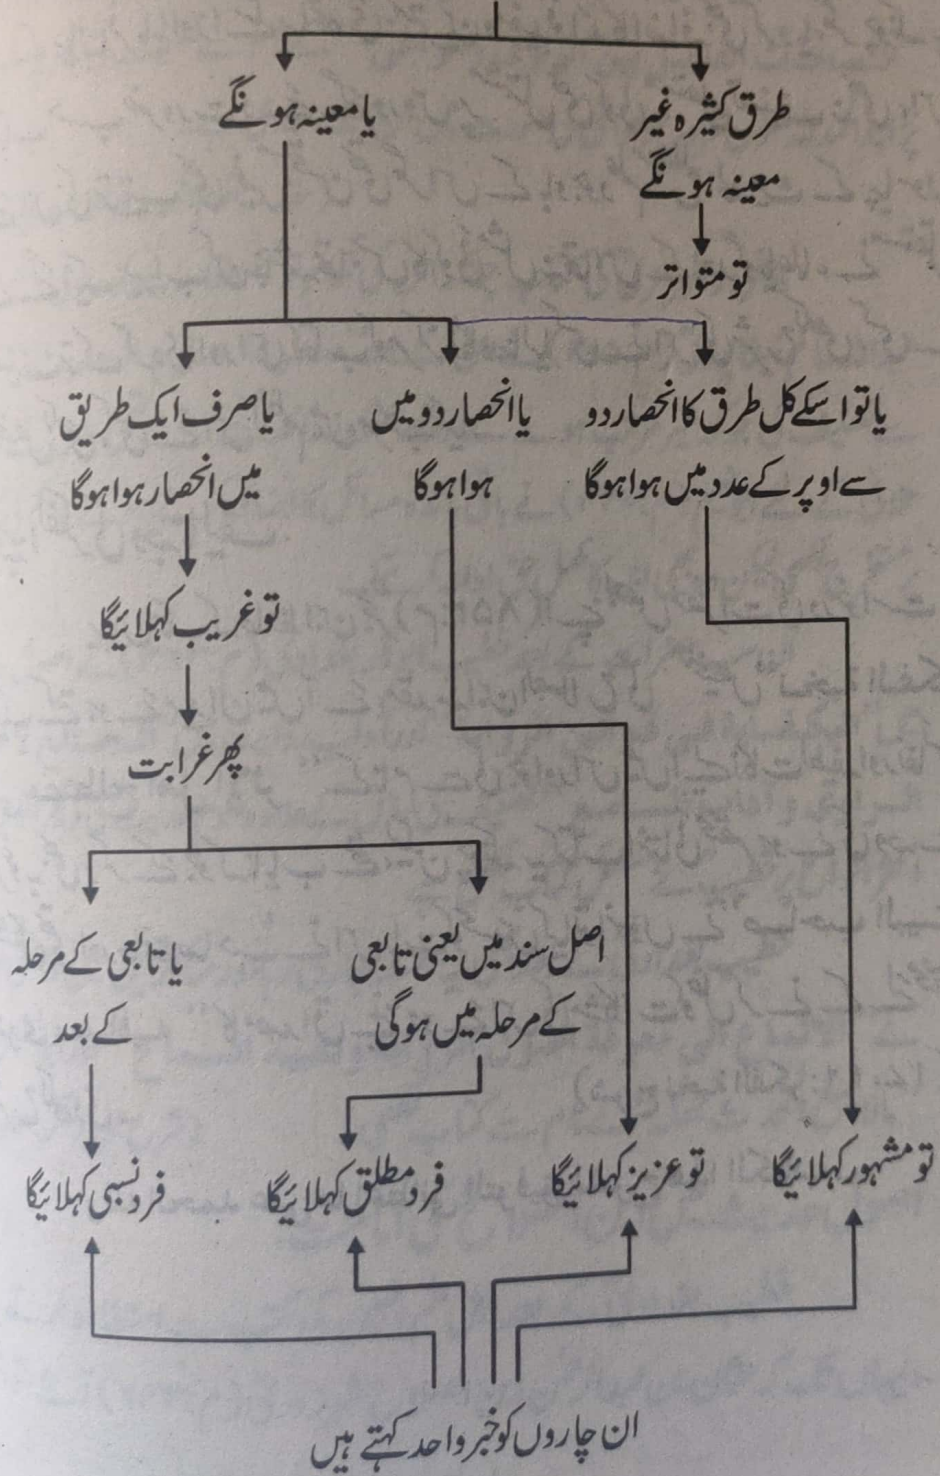 طرق کثیرہ غیر
معینہ ہونگے
تو متواتر
یا معینہ ہونگے
یا تو اسکے کل طرق کا انحصار دو
سے اوپر کے عدد میں ہوا ہوگا
یا انحصار دو میں
ہوا ہوگا
یا صرف ایک طریق
میں انحصار ہوا ہوگا
تو غریب کہلائیگا
پھر غرابت
اصل سند میں یعنی تابعی
کے مرحلہ میں ہوگی
یا تابعی کے مرحلہ
کے بعد
تو مشہور کہلائیگا
تو عزیز کہلائیگا
فرد مطلق کہلائیگا
فرد نسبی کہلائیگا
ان چاروں کو خبر واحد کہتے ہیں